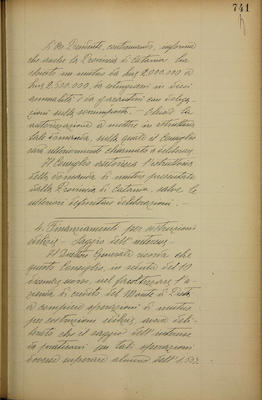 741
Il Sig. Presidente, continuando, informa
che anche la Provincia di Catania ha
chiesto un mutuo da lire 2.000.000 a
lire 2.500.000, da estinguersi in dieci
annualità e da garantirsi con delega-
zioni sulla sovrimposta. - Chiede la
autorizzazione a mettere in istruttoria
tale domanda, sulla quale il Consiglio
sarà ulteriormente chiamato a deliberare.
Il Consiglio autorizza l'istruttoria
della domanda di mutuo presentata
dalla Provincia di Catania, salve le
ulteriori definitive deliberazioni. -
4. Finanziamenti per costruzioni
edilizie - Saggio dell'interesse -
Il Direttore Generale ricorda che
questo Consiglio, in seduta del 19
nel
di credito del Monte di
a compiere operazioni di mutuo
per costruzioni edilizie, aveva deli-
berato che il saggio dell'interesse
da praticarsi per tali operazioni
dovesse superare almeno dell'1.50%